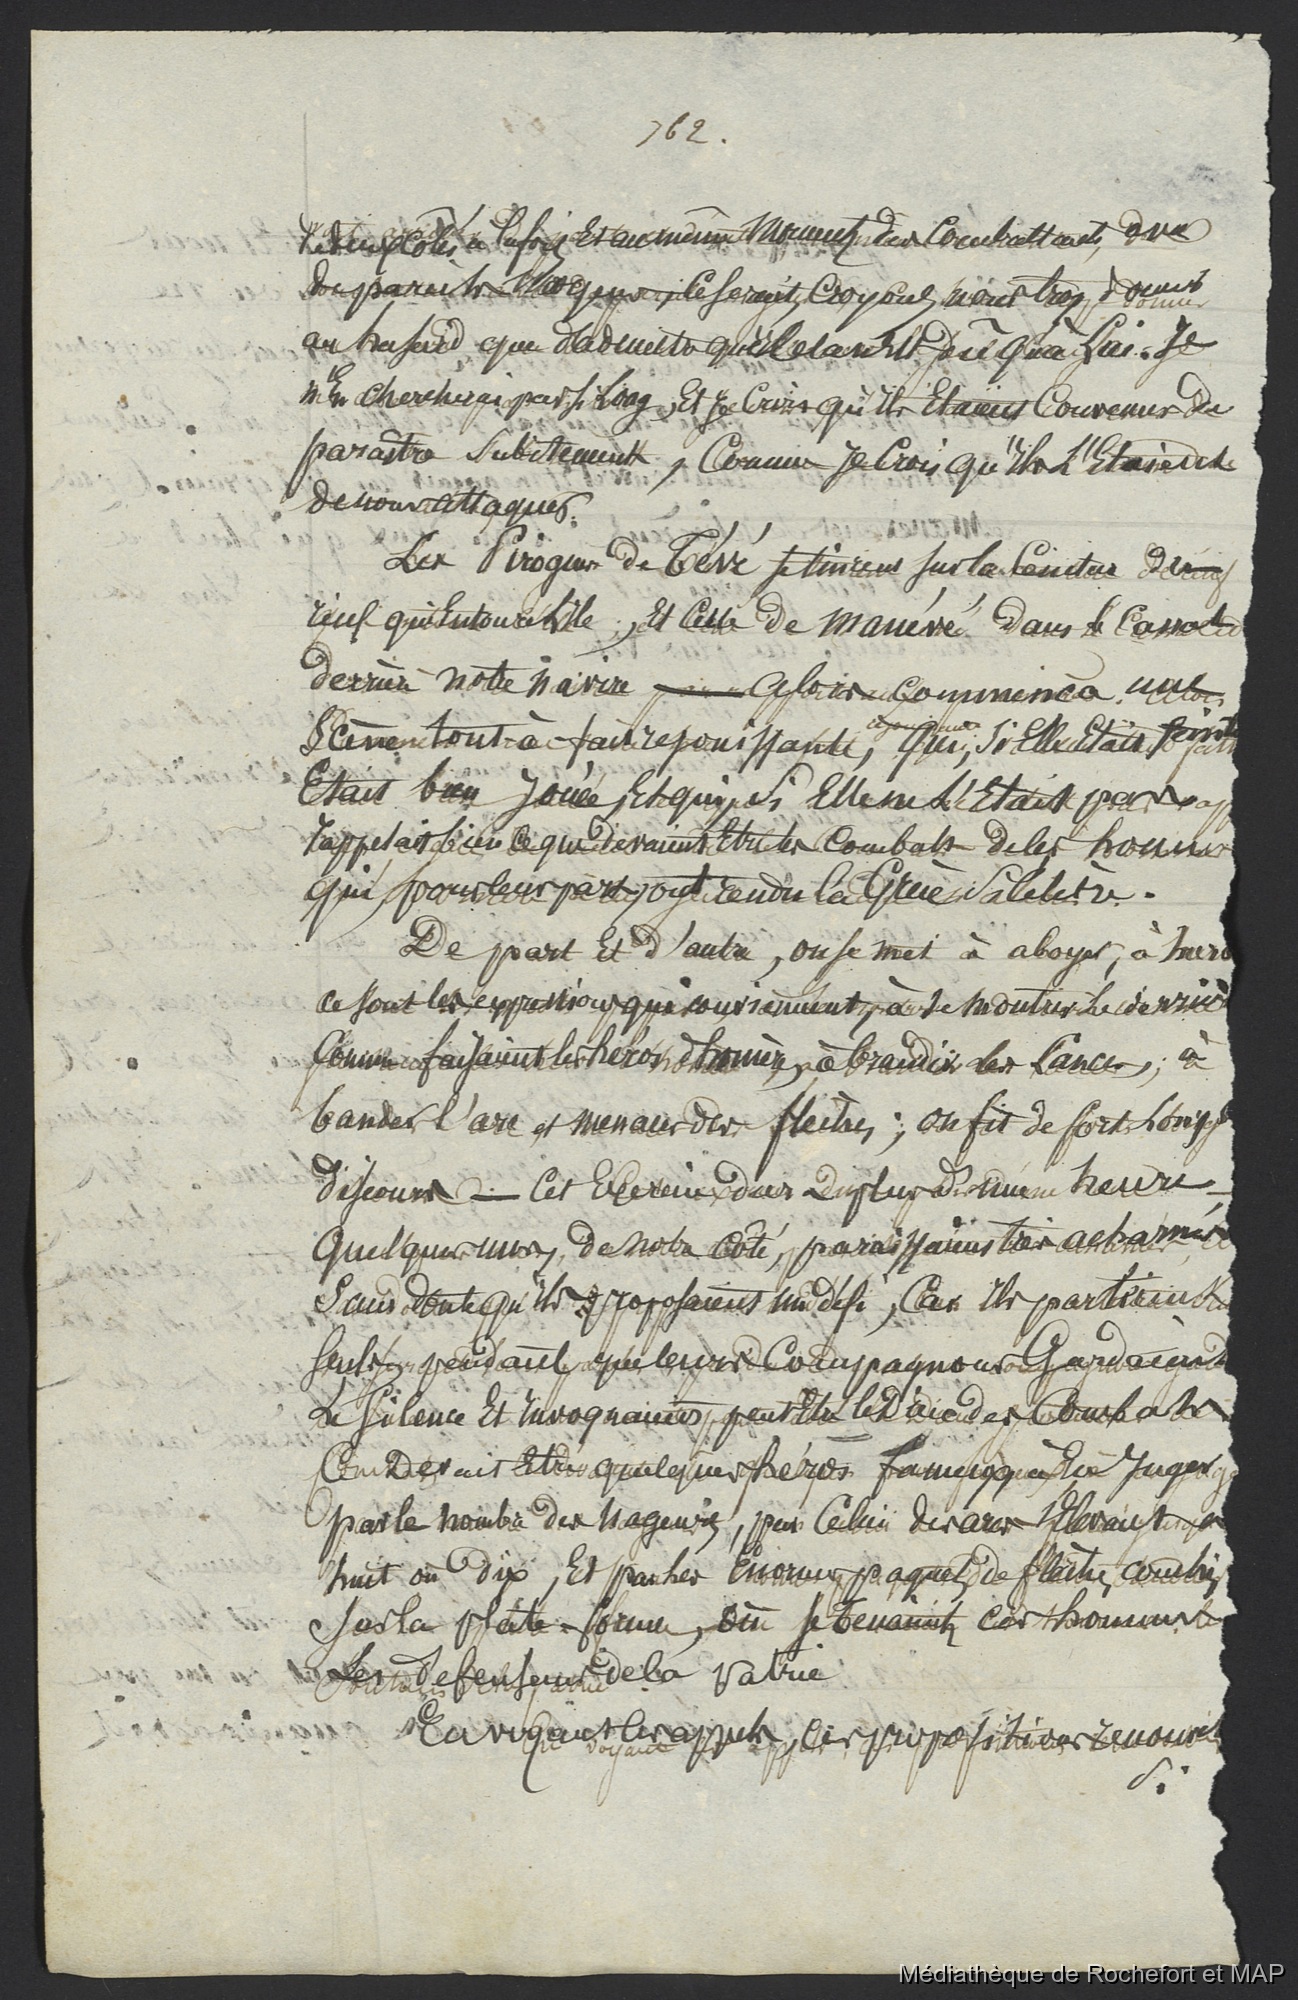 762.
des deux côtés à la fois Et au même Moment des Combattants, des
Ce serait, croyons nous trop donner
au hasard que d'admettre qu'il étandit jusqu'à Lui. Je
n'En chercherai pas si Long, Et Je Crois qu'ils Etaient Convenus de
paraître Subitement, Comme Je Crois qu'ils L'Etaient
de nous attaquer.
Les Pirogues de Tévé se tinrent sur la Ceinture
récif qui Entoure L'île, Et Celle de Manévé dans le Canot
derrière notre Navire — Alors commença une
Scène tout à fait réjouissante, qui, si Elle Etait feinte
Etait bien Jouée, Et qui, si Elle ne L'Etait pas
rappelait bien Ce que devaient Etre les Combats de les hommes
qui pour leur part, ont rendu la Grèce si Célèbre.
De part Et d'autre, on se met à aboyer, à hurler
ce sont les expressions qui conviennent, à se montrer Le derrière
Comme faisaient les héros d'homère, à brandir les Lances, à
bander l'arc et menacer des flèches; on fit de fort Longs
discours — Cet Exercice dura du plus d'une heure
Quelques uns, de notre Côté, paraissaient très acharnés
Sans doute qu'ils proposaient un défi, Car ils partirent
Seuls, pendant que leurs Compagnons Gardaient
Le Silence Et Invoquaient peut Etre le Dieu des Combats
Ce devait Etre quelques héros fameux, à En Juger
par le nombre des nageurs, par Celui des arcs s'Elevant
huit ou dix, Et par les Enormes paquets de flèches, couchés
sur la plate-forme, où se Tenaient ces hommes
Les défenseurs de la Patrie
En voyant les appels, les propositions renouvel
Si
Médiathèque de Rochefort et MAP